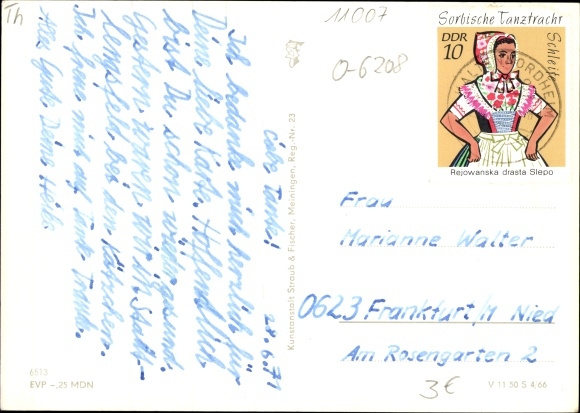 Th
11007
0-6208
Sorbische Tanztracht
Schleife
DDR
10
Rejowanska drasta Slepo
Liebe Tante!
28.6.71
Ich bedanke mich herzlich für
Deine liebe Karte. Hoffentlich
bist Du schon wieder gesund.
Gestern waren wir in Stadt-
lengsfeld bei den Kärchen.
Ich freue mich auf Tante Traudl.
Alles Gute Deine Heidi
Kunstanstalt Straub & Fischer, Meiningen, Reg.-Nr. 23
Frau
Marianne Walter
0623 Frankfurt/M Nied
Am Rosengarten 2
6513
EVP -,25 MDN
3€
V 11 50 S 4/66